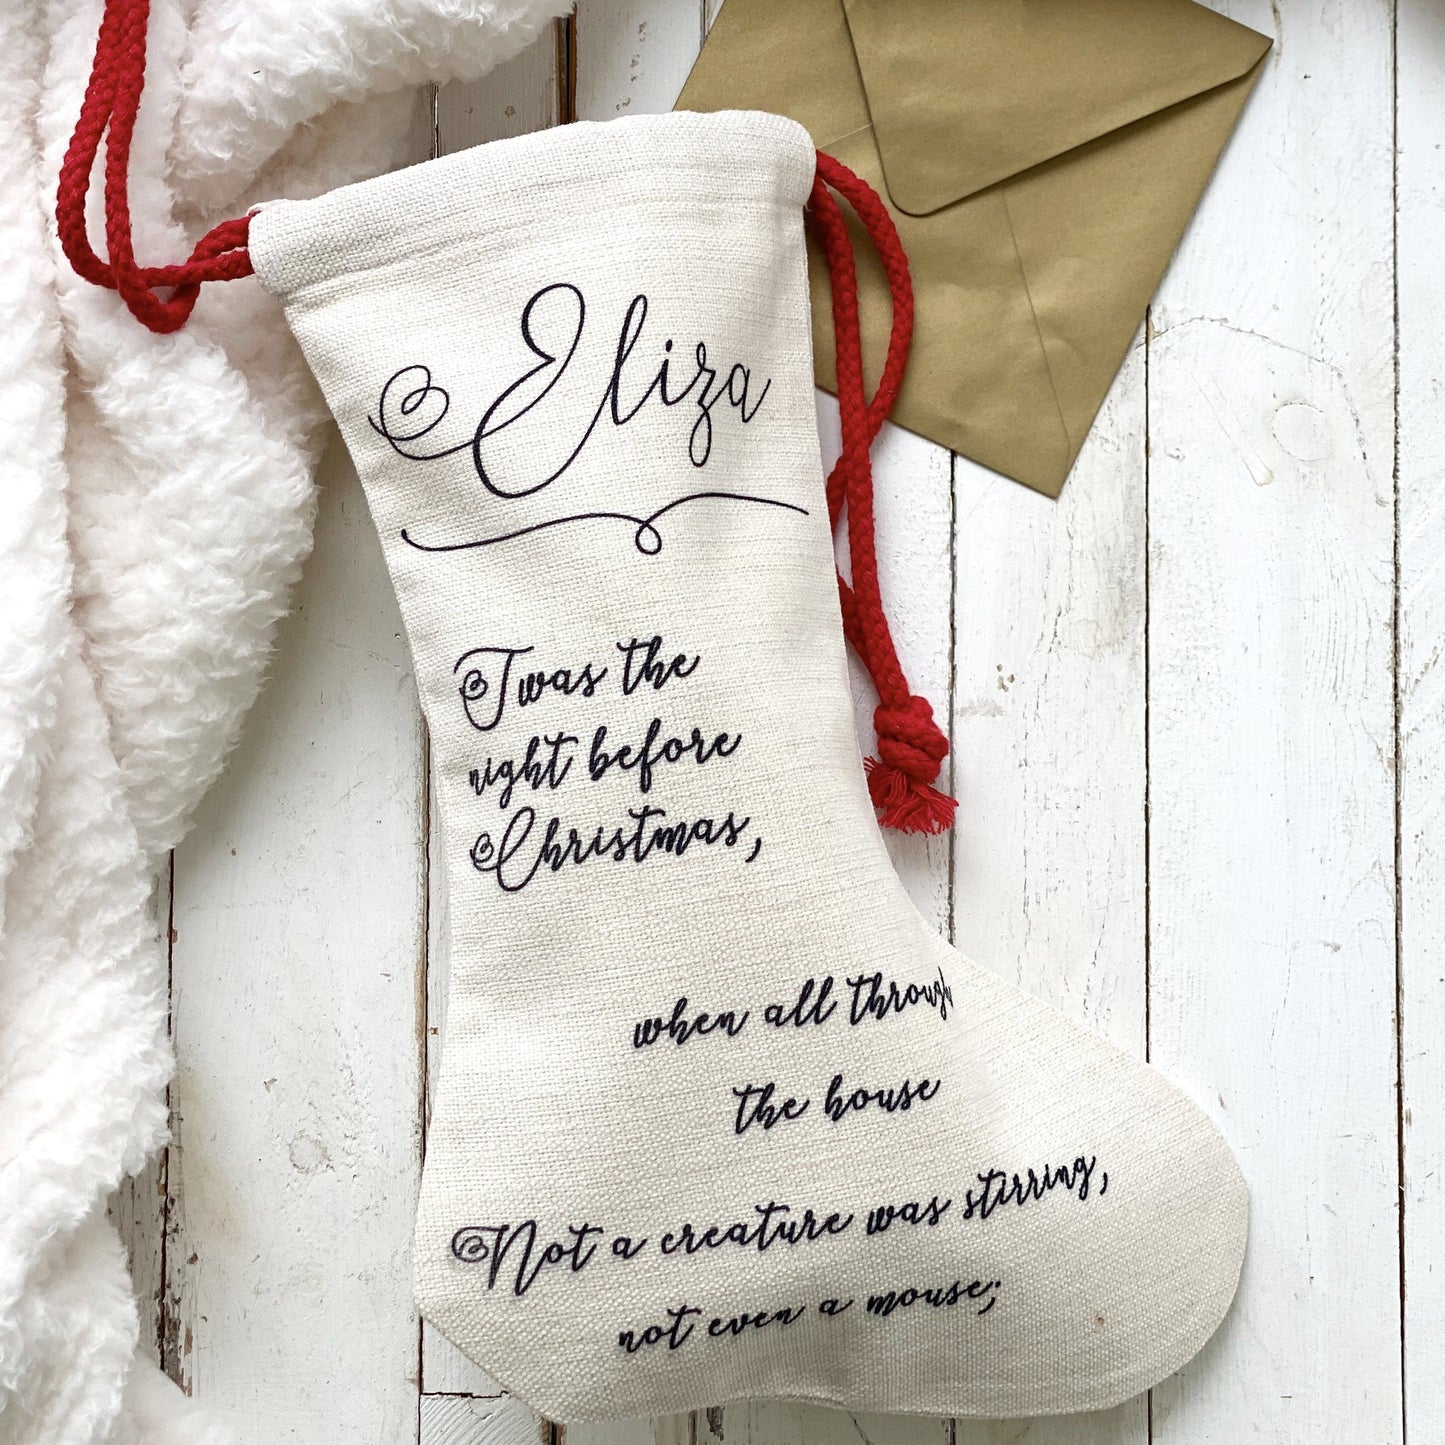 Eliza
Twas the
night before
Christmas,
when all through
the house
Not a creature was stirring,
not even a mouse;